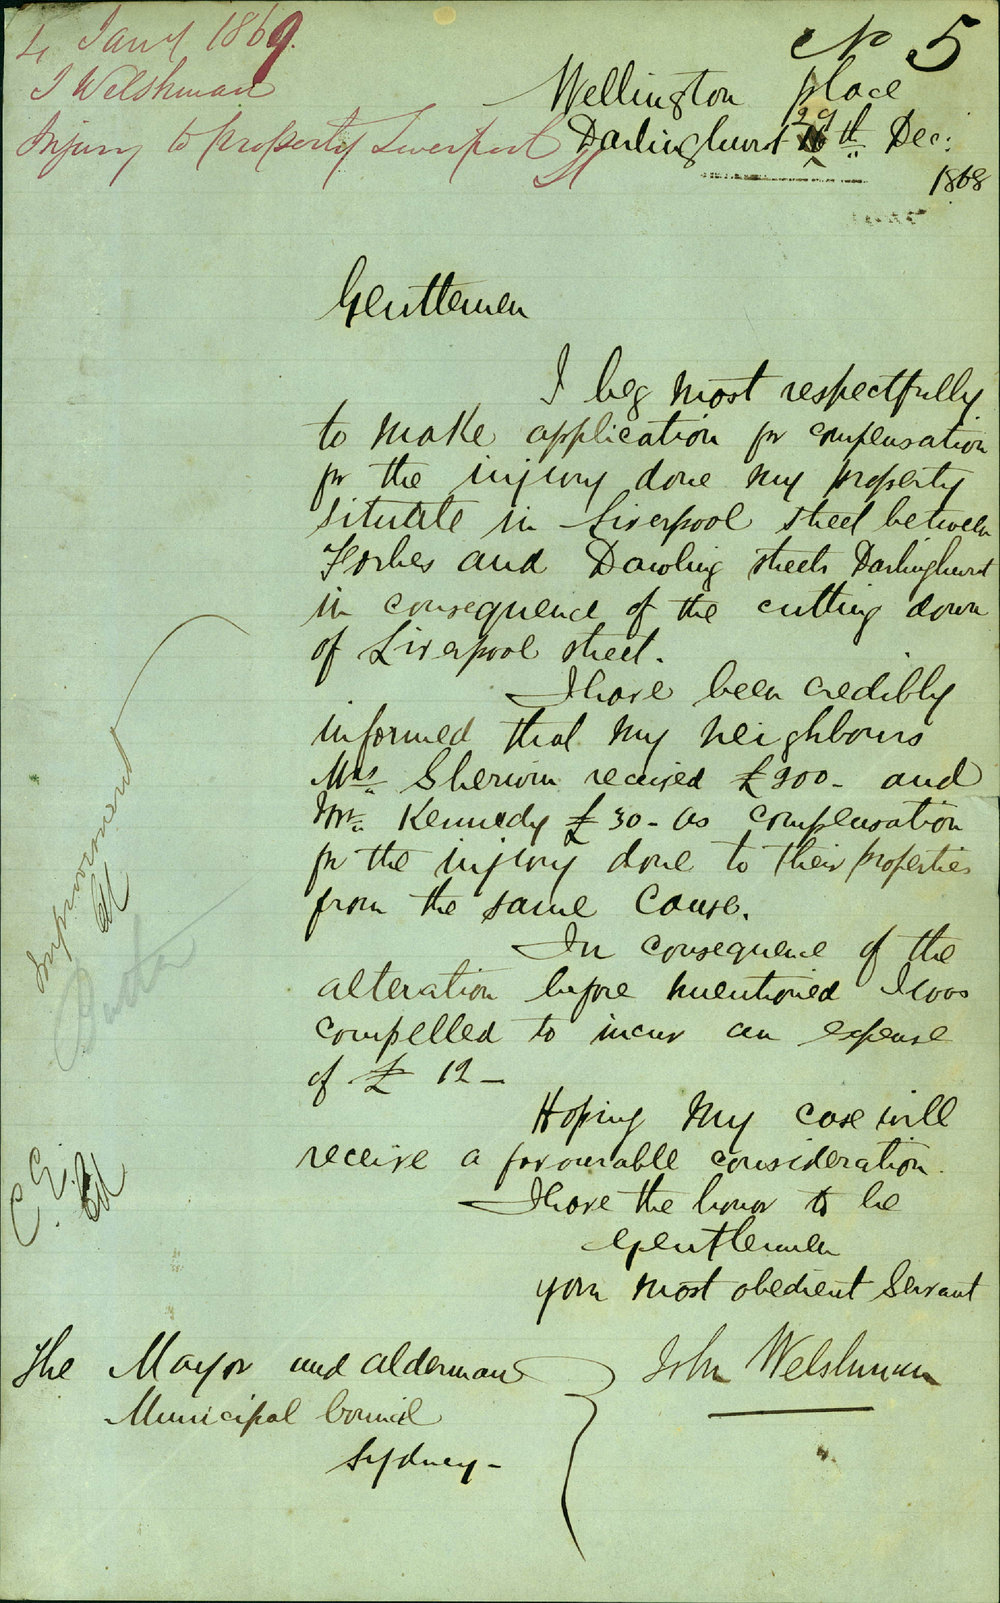 No 5
4 Jany 1869.
J Welshman
Injury to property Liverpool
St
Wellington place
Darlinghurst 29th Dec:
1868
Gentlemen
I beg most respectfully
to make application for compensation
for the injury done my property
situate in Liverpool street between
Forbes and Dowling streets Darlinghurst
in consequence of the cutting down
of Liverpool street.
I have been credibly
informed that my neighbours
Mrs Sherwin received £200- and
Mrs Kennedy £30- as compensation
for the injury done to their properties
from the same cause.
In consequence of the
alteration before mentioned I was
compelled to incur an expense
of £ 12-
Hoping my case will
receive a favourable consideration.
I have the honor to be
Gentlemen
your most obedient Servant
John Welshman
The Mayor and alderman
Municipal Council
Sydney-
Improvement
C. E.